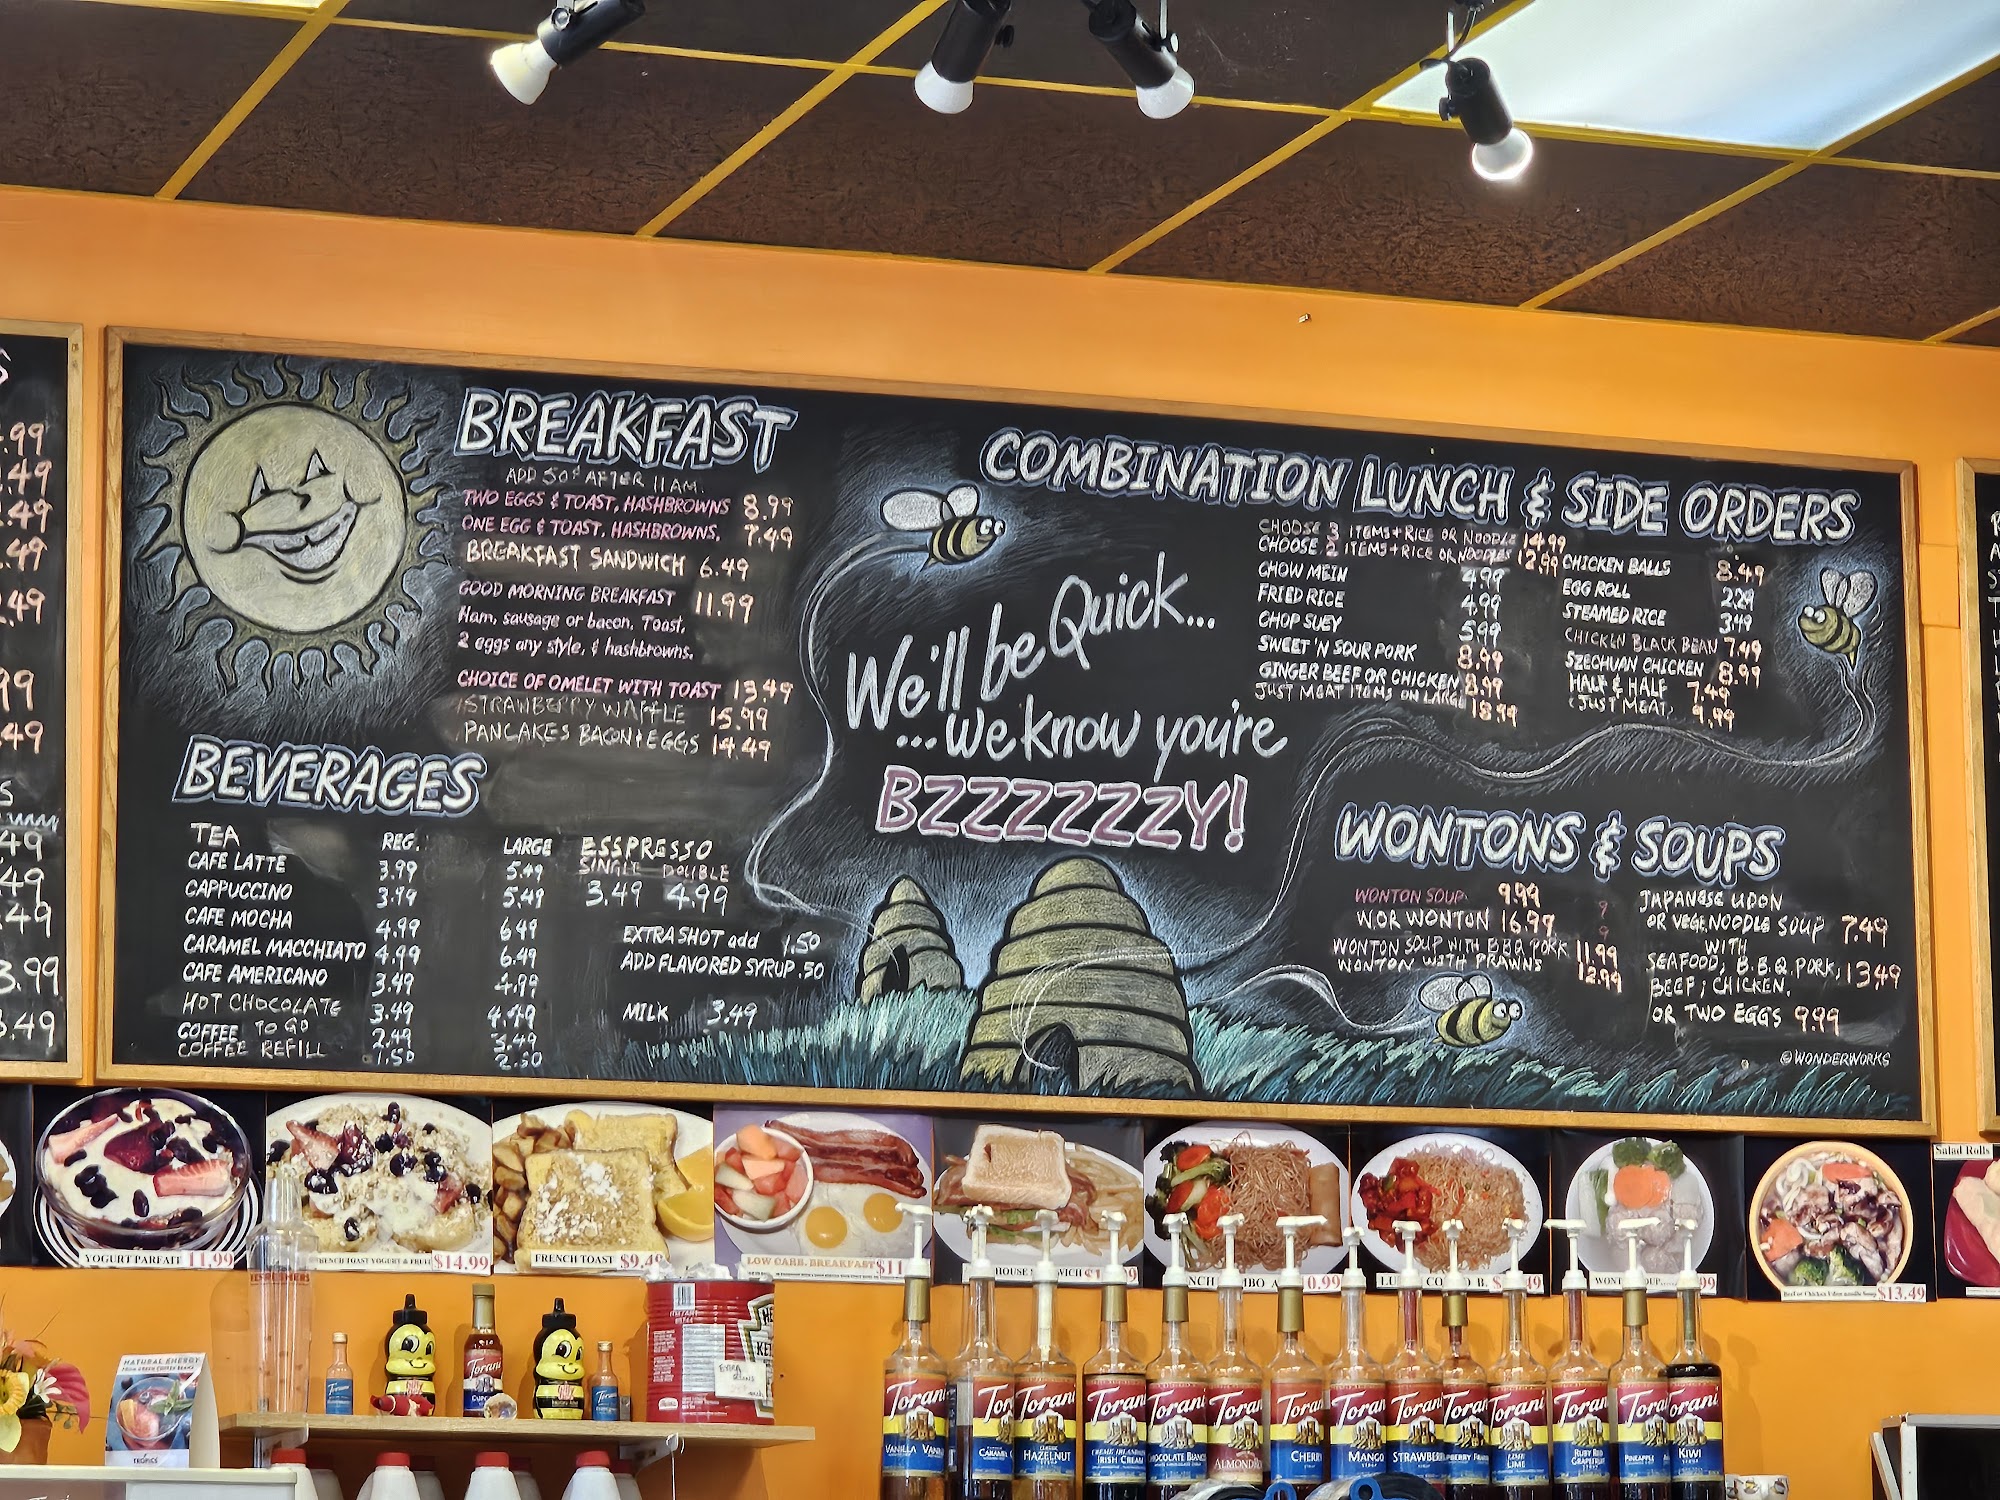 BREAKFAST
ADD 50¢ AFTER 11 AM.
TWO EGGS & TOAST, HASHBROWNS 8.99
ONE EGG & TOAST, HASHBROWNS, 7.49
BREAKFAST SANDWICH 6.49
GOOD MORNING BREAKFAST 11.99
Ham, sausage or bacon, Toast,
2 eggs any style, & hashbrowns.
CHOICE OF OMELET WITH TOAST 13.49
STRAWBERRY WAFFLE 15.99
PANCAKES BACON & EGGS 14.49
BEVERAGES
TEA REG. LARGE
CAFE LATTE 3.99 5.49
CAPPUCCINO 3.99 5.49
CAFE MOCHA 4.99 6.49
CARAMEL MACCHIATO 4.99 6.49
CAFE AMERICANO 3.49 4.99
HOT CHOCOLATE 3.49 4.49
COFFEE TO GO 2.49 3.49
COFFEE REFILL 1.50 2.50
ESSPRESSO
SINGLE DOUBLE
3.49 4.99
EXTRA SHOT add 1.50
ADD FLAVORED SYRUP .50
MILK 3.49
We'll be Quick...
...we know you're
BZZZZZZY!
COMBINATION LUNCH & SIDE ORDERS
CHOOSE 3 ITEMS + RICE OR NOODLE 14.99
CHOOSE 2 ITEMS + RICE OR NOODLES 12.99
CHOW MEIN 4.99
FRIED RICE 4.99
CHOP SUEY 5.99
SWEET 'N SOUR PORK 8.99
GINGER BEEF OR CHICKEN 8.99
JUST MEAT ITEMS ON LARGE 18.99
CHICKEN BALLS 8.49
EGG ROLL 2.29
STEAMED RICE 3.49
CHICKEN BLACK BEAN 7.49
SZECHUAN CHICKEN 8.99
HALF & HALF 7.49
(JUST MEAT) 9.99
WONTONS & SOUPS
WONTON SOUP 9.99
WOR WONTON 16.99
WONTON SOUP WITH B.B.Q. PORK 11.99
WONTON WITH PRAWNS 12.99
JAPANESE UDON
OR VEGE. NOODLE SOUP 7.49
WITH
SEAFOOD, B.B.Q. PORK, 13.49
BEEF, CHICKEN,
OR TWO EGGS 9.99
©WONDERWORKS
YOGURT PARFAIT 11.99
FRENCH TOAST YOGURT & FRUIT $14.99
FRENCH TOAST $9.49
LOW CARB. BREAKFAST $11
HOUSE
$13.49
Salad Rolls
NATURAL ENERGY
FROM GREEN COFFEE BEANS
TROPICS
Torani VANILLA
Torani CARAMEL
Torani CLASSIC HAZELNUT
Torani IRISH CREAM
Torani CHOCOLATE
Torani ALMOND
Torani CHERRY
Torani MANGO
Torani STRAWBERRY
Torani
Torani LIME
Torani RUBY RED GRAPEFRUIT
Torani PINEAPPLE
Torani KIWI